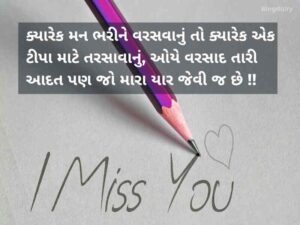 ક્યારેક મન ભરીને વરસવાનું તો ક્યારેક એક
ટીપા માટે તરસાવાનું, ઓયે વરસાદ તારી
આદત પણ જો મારા યાર જેવી જ છે !!
I Miss You